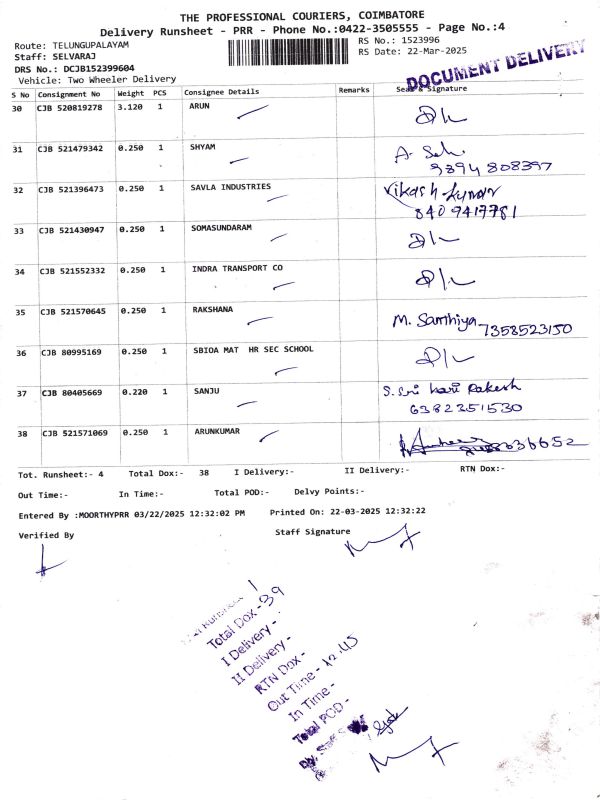 THE PROFESSIONAL COURIERS, COIMBATORE
Delivery Runsheet - PRR - Phone No.:0422-3505555 - Page No.:4
Route: TELUNGUPALAYAM
RS No.: 1523996
Staff: SELVARAJ
RS Date: 22-Mar-2025
DRS No.: DCJB152399604
Vehicle: Two Wheeler Delivery
DOCUMENT DELIVERY
S No Consignment No Weight PCS Consignee Details Remarks Seal & Signature
30 CJB 520819278 3.120 1 ARUN
31 CJB 521479342 0.250 1 SHYAM
9894 808397
32 CJB 521396473 0.250 1 SAVLA INDUSTRIES Vikash kumar
8409417781
33 CJB 521430947 0.250 1 SOMASUNDARAM
34 CJB 521552332 0.250 1 INDRA TRANSPORT CO
35 CJB 521570645 0.250 1 RAKSHANA M. Santhiya 7358523150
36 CJB 80995169 0.250 1 SBIOA MAT HR SEC SCHOOL
37 CJB 80405669 0.220 1 SANJU S. Sri Hari Rakesh
6382351530
38 CJB 521571069 0.250 1 ARUNKUMAR
Tot. Runsheet:- 4 Total Dox:- 38 I Delivery:- II Delivery:- RTN Dox:-
Out Time:- In Time:- Total POD:- Delvy Points:-
Entered By :MOORTHYPRR 03/22/2025 12:32:02 PM Printed On: 22-03-2025 12:32:22
Verified By Staff Signature
Total Dox - 39
I Delivery -
II Delivery -
RTN Dox -
Out Time - 12.45
In Time -
Total POD -